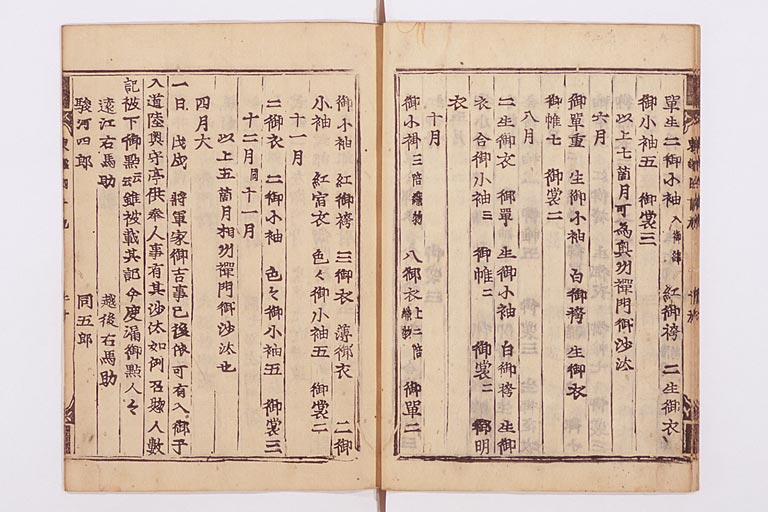 單生二御小袖 紅御袴 二生御衣
御小袖五 御裳三
以上七箇月可為奥州禪門御沙汰
六月
御單重 生御小袖 白御袴 生御衣
御帷七 御裳二
八月
二生御衣 御單 生御小袖 白御袴生 生御
衣 小合御小袖三 御帷二 御裳二 御明
衣
十月
御小褂三倍織物 八御衣上二倍織物 御單二
御小袖 紅御袴 三御衣 薄御衣 二御
小袖 紅宿衣 色々御小袖五 御裳二
十一月
二御衣 二御小袖 色々御小袖五 御裳三
十二月閏十一月
以上五箇月相州禪門御沙汰也
四月大
一日 戊戌 將軍家御吉事已後依可有入御于
入道陸奥守亭供奉人事有其沙汰如例召趣人數
記被下御點云云雖被載其記今度漏御點人々
遠江右馬助 越後右馬助
駿河四郎 同五郎